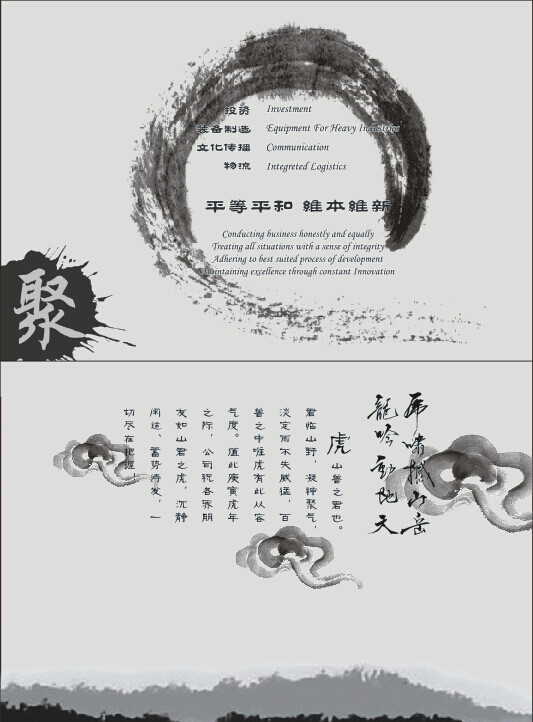 投资 Investment
装备制造 Equipment For Heavy Industries
文化传播 Communication
物流 Integreted Logistics
平等平和 維本維新
Conducting business honestly and equally
Treating all situations with a sense of integrity
Adhering to best suited process of development
Maintaining excellence through constant Innovation
聚
虎啸撼山岳
龍吟動地天
虎 山兽之君也。
君临山野，凝神聚气，
淡定而不失威猛，百
兽之中唯虎有此从容
气度。值此庚寅虎年
之际，公司祝各界朋
友如山君之虎，沉静
闲适、蓄势待发，一
切尽在把握！